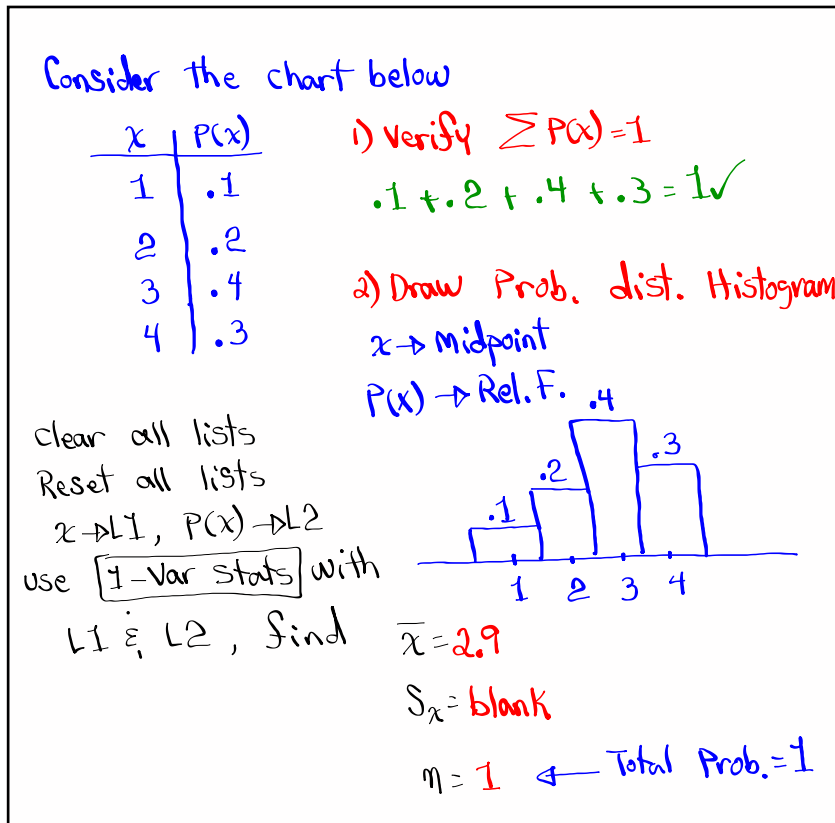 Consider the chart below
x P(x)
1 .1
2 .2
3 .4
4 .3
1) Verify ΣP(x)=1
.1 + .2 + .4 + .3 = 1✓
2) Draw Prob. dist. Histogram
x → Midpoint
P(x) → Rel. F.
.1 .2 .4 .3
1 2 3 4
Clear all lists
Reset all lists
x→L1, P(x)→L2
use 1-Var Stats with
L1 & L2, find
x̄ = 2.9
Sx = blank
n = 1 ← Total Prob. = 1